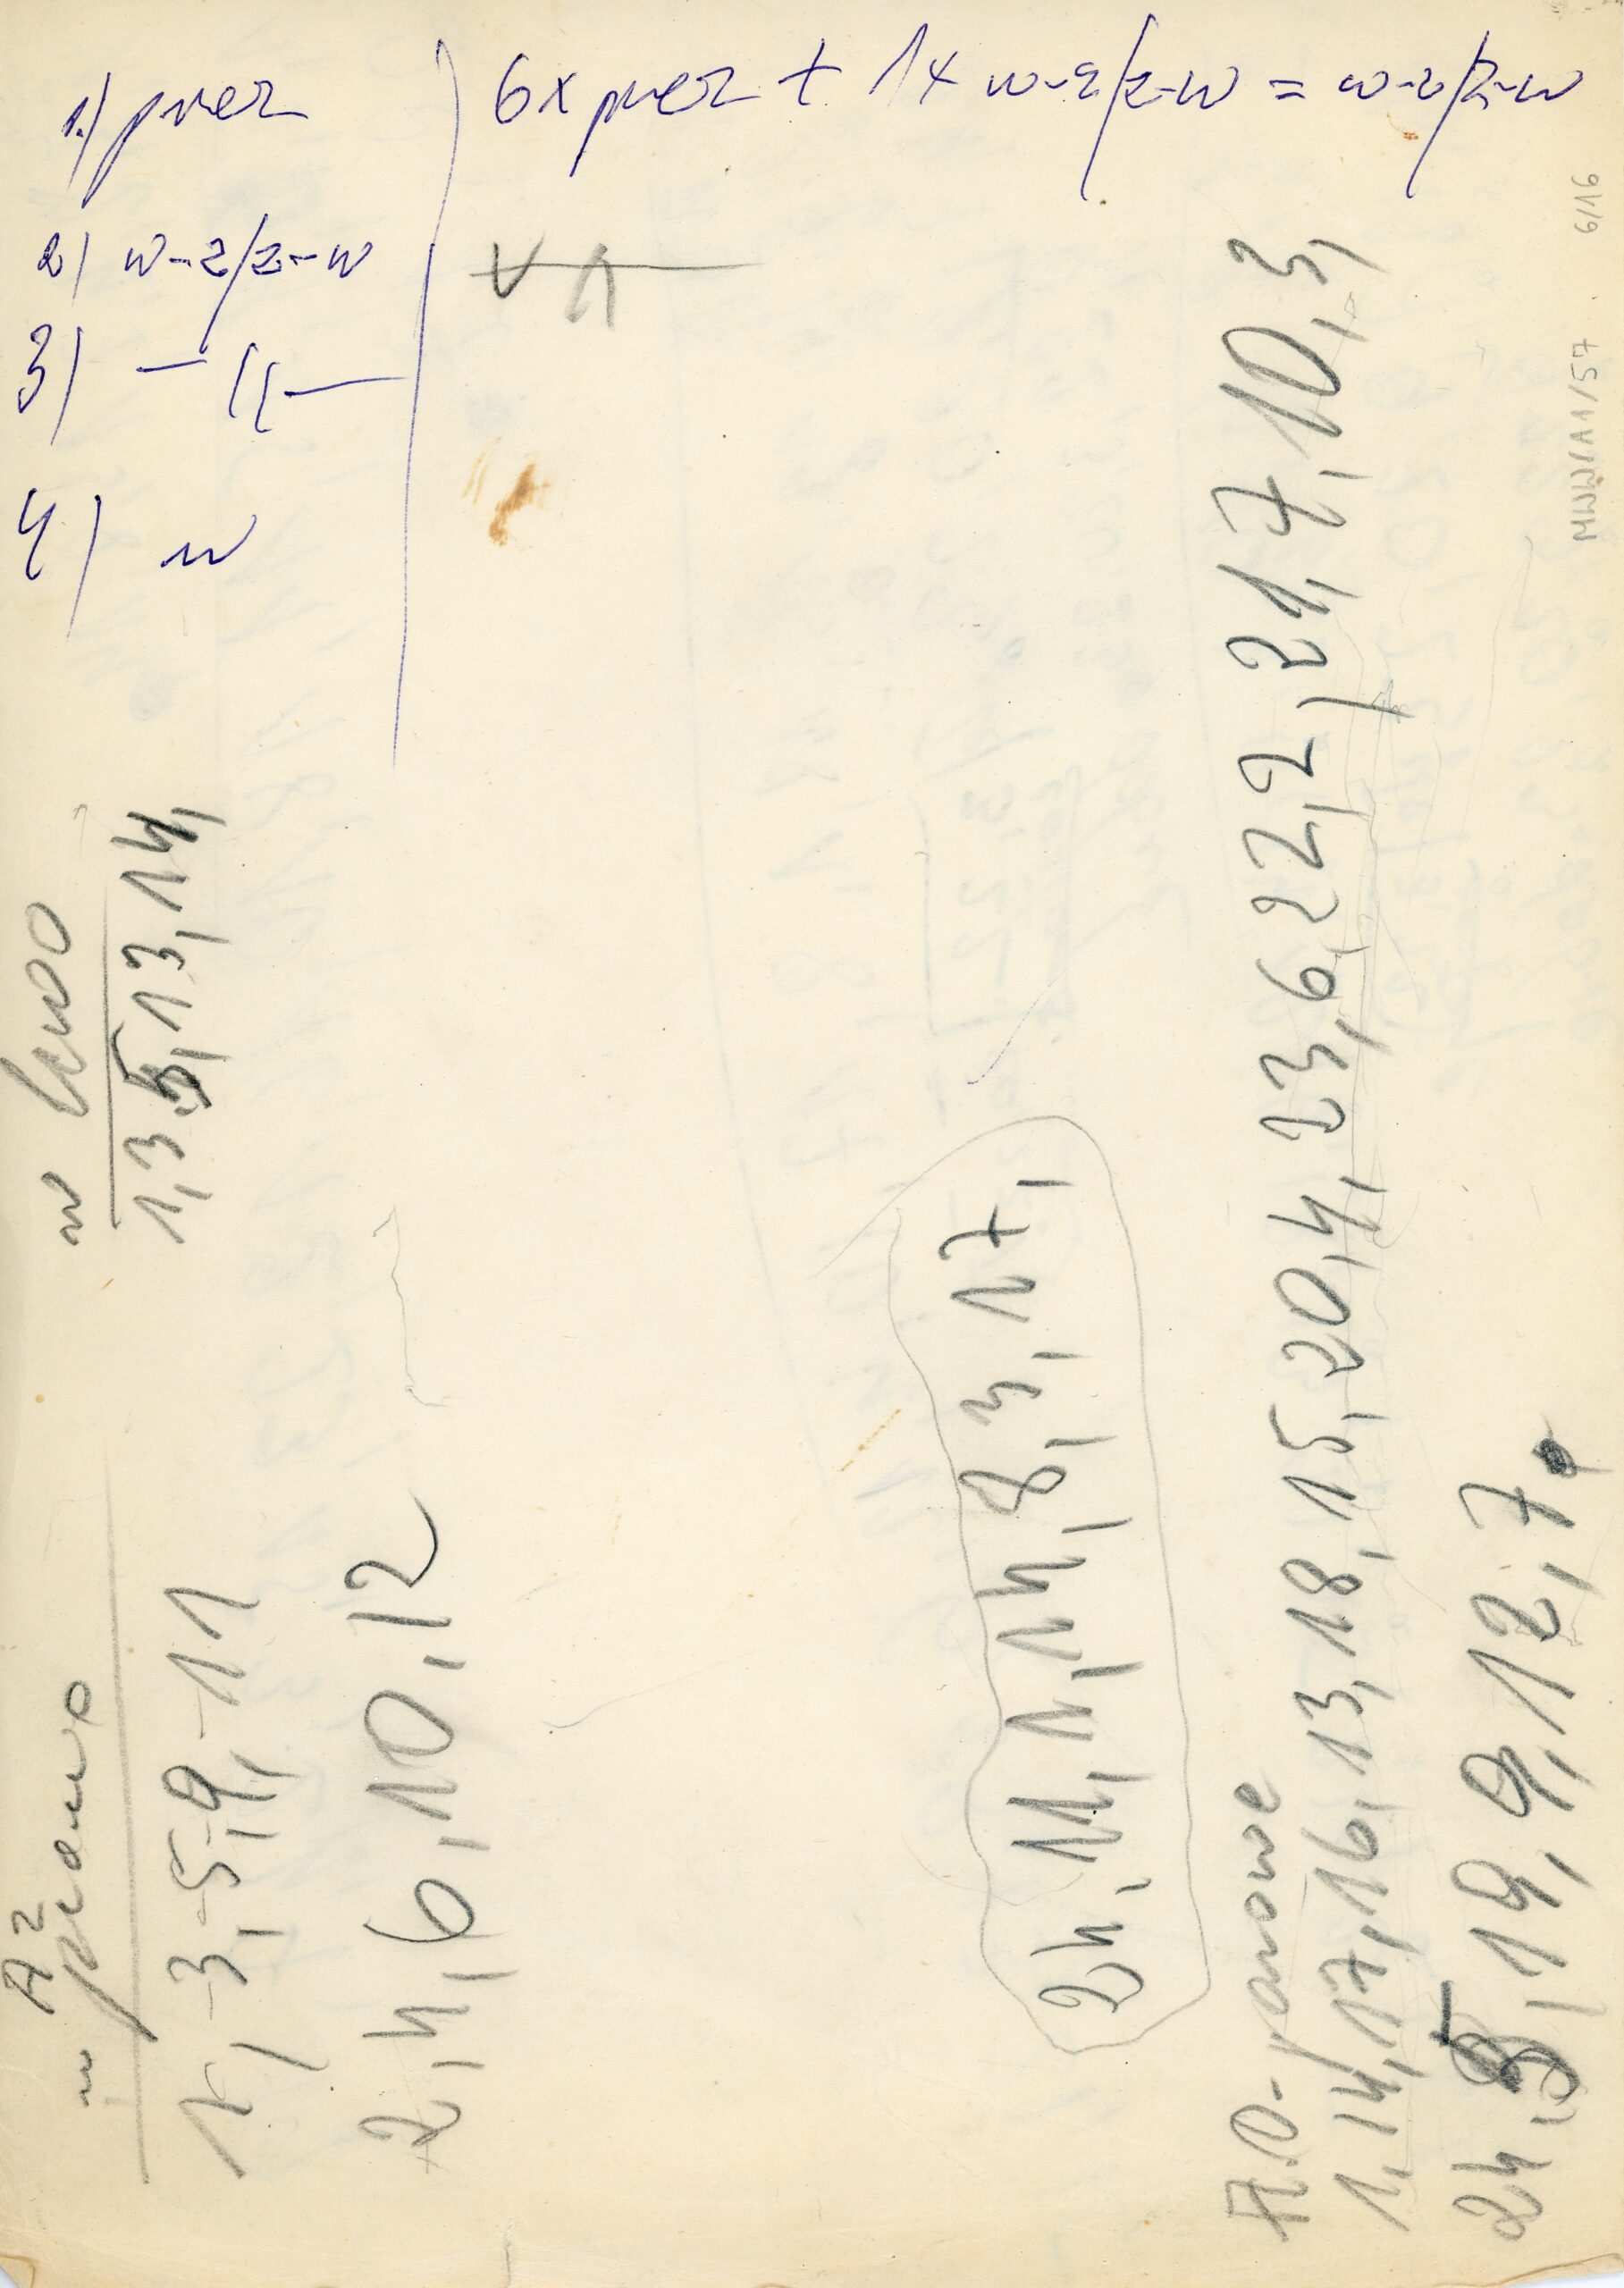 1.) przez
6x przez + 1x w-z/z-w = w-z/z-w
2) w-z/z-w
3) — 〃 —
4) w
w lewo
1, 3, 5, 13, 14,
A²
w prawo
1, -3, -5, -9, -11
2, 4, 6, 10, 12
24, 11, 1, 14, 8, 3, 17,
1, 14, 17, 16, 13, 18, 15, 20, 4, 23, 6, 22, 2, 21, 7, 10, 3,
24, 5, 19, 9, 12, 7.
MNW/A1/57 6/16